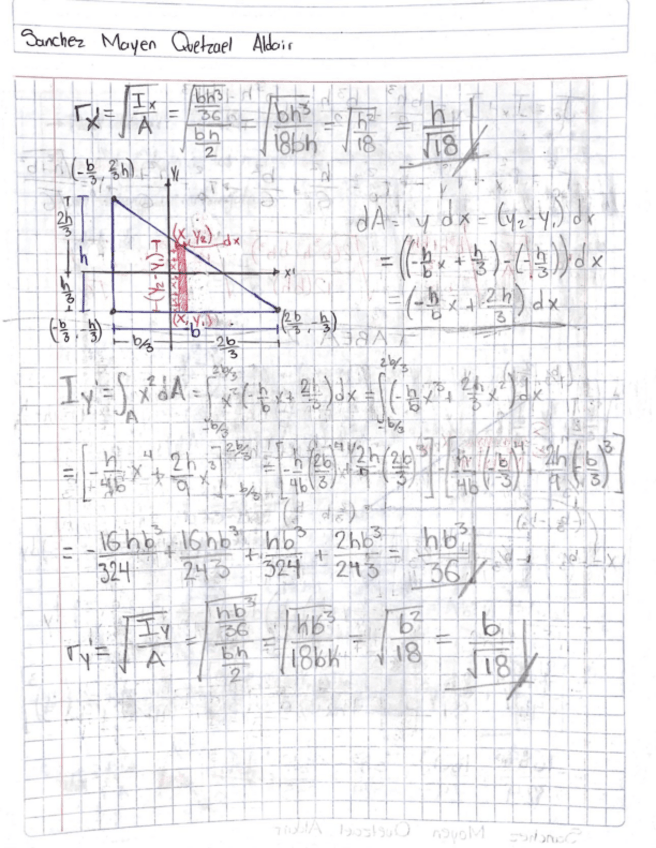 Sanchez Mayen Quetzael Aldair
rx' = √(Ix/A) = √((bh³/36)/(bh/2)) = √(bh³/18bh) = √(h²/18) = h/√18
(-b/3, 2/3h)
y'
2h/3
h
h/3
(x, y2)
dx
(y2-y1)
x'
(x, y1)
(-b/3, -h/3)
(2b/3, -h/3)
b
b/3
2b/3
dA = y dx = (y2-y1) dx
= ((-h/b x + h/3) - (-h/3)) dx
= (-h/b x + 2h/3) dx
Iy' = ∫A x² dA = ∫-b/3^2b/3 x² (-h/b x + 2h/3) dx = ∫-b/3^2b/3 (-h/b x³ + 2h/3 x²) dx
= [-h/4b x⁴ + 2h/9 x³]-b/3^2b/3 = [-h/4b (2b/3)⁴ + 2h/9 (2b/3)³] - [
= -16hb³/324 + 16hb³/243 + hb³/324 + 2hb³/243 = hb³/36
ry' = √(Iy/A) = √((hb³/36)/(bh/2)) = √(hb³/18bh) = √(b²/18) = b/√18